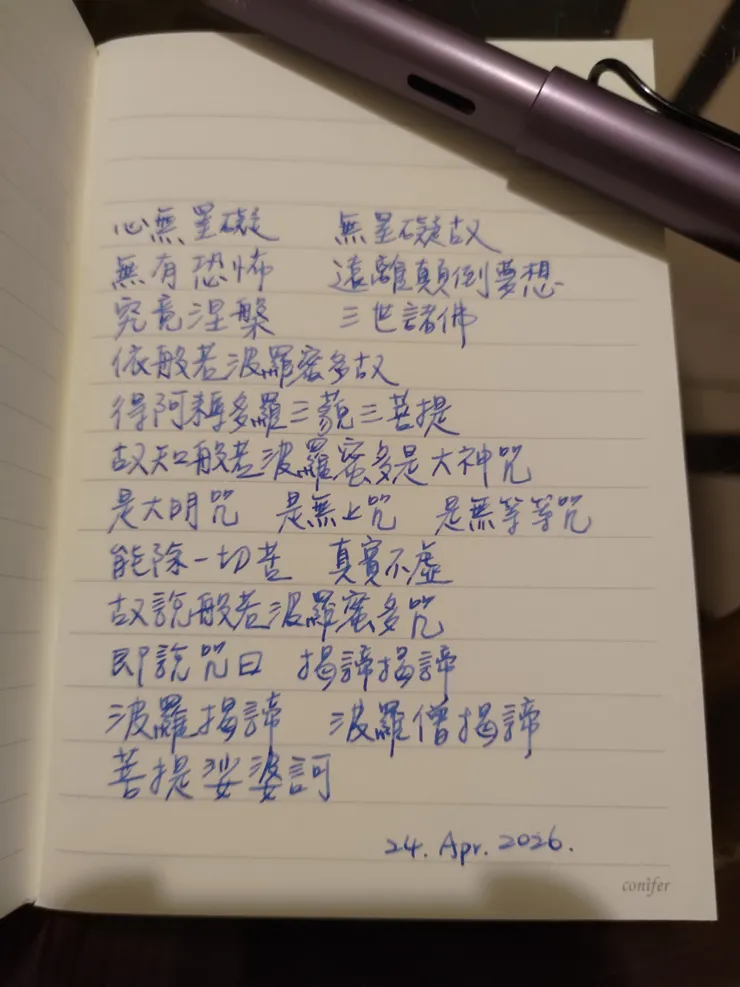 心無罣礙　無罣礙故
無有恐怖　遠離顛倒夢想
究竟涅槃　三世諸佛
依般若波羅蜜多故
得阿耨多羅三藐三菩提
故知般若波羅蜜多是大神咒
是大明咒　是無上咒　是無等等咒
能除一切苦　真實不虛
故說般若波羅蜜多咒
即說咒曰　揭諦揭諦
波羅揭諦　波羅僧揭諦
菩提娑婆訶
24. Apr. 2026.
conifer